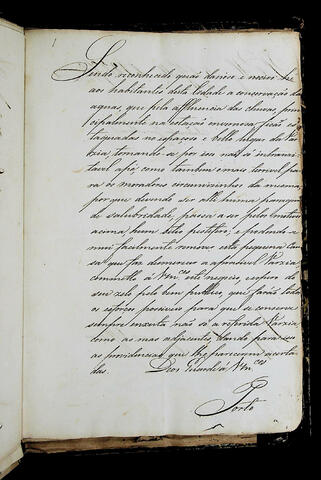 Sendo reconhecido quão danoso e nocivo he
aos habitantes desta Cidade a conservação das
aguas, que pela affluencia das chuvas, prin
cipalmente na estação invernosa ficão es
tagnadas no espaçoso e bello lugar da Var
zia, tornando-a por isso não só intransi
tavel aps, como tambem o mais terrivel pa
ra os moradores circumvisinhos da mesma,
por que devendo ser alli huma
de salubridade, passa a ser pelos motivos
acima, hum foco pestifero; e podendo-se
mui facilmente remover esta pequena cau
sa que faz desmerecer a aprasivel Varzia,
commetto á Vm.ces este negocio, e espero do
seu zelo pelo bem publico, que farão todos
os esforços possiveis para que se conserve
sempre enxuta não só a referida Varzia,
como as mais adjacentes, dando para isso
as providencias que lhe parecerem acerta
das. Deos Guarde a Vm.ces
Porto